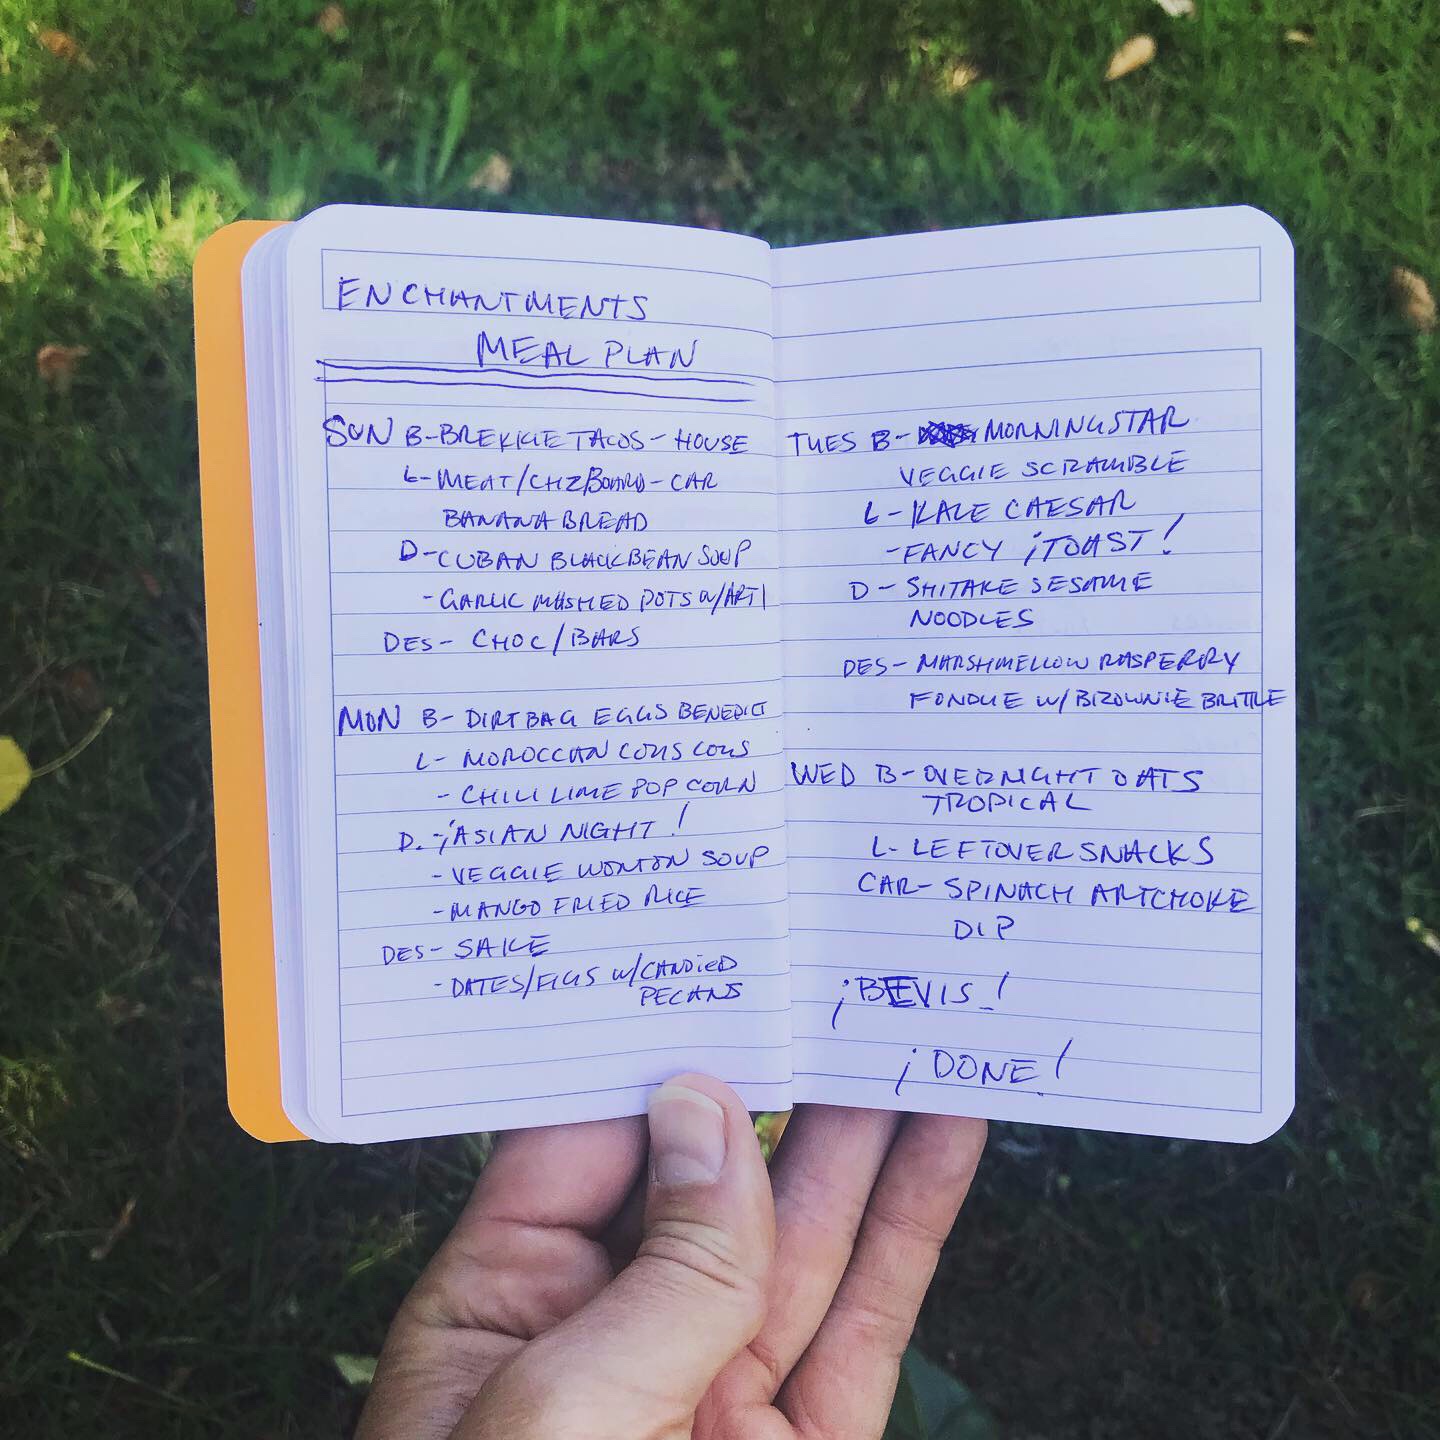 ENCHANTMENTS
MEAL PLAN
SUN B-BREKKIE TACOS - HOUSE
L-MEAT/CHZ/BOARD-CAR
BANANA BREAD
D-CUBAN BLACKBEAN SOUP
-GARLIC MASHED POTS W/ARTI
DES- CHOC/BARS
MON B- DIRTBAG EGGS BENEDICT
L- MOROCCAN COUS COUS
- CHILI LIME POP CORN
D.-¡ASIAN NIGHT!
-VEGGIE WONTON SOUP
-MANGO FRIED RICE
DES- SAKE
-DATES/FIGS W/CANDIED
PECANS
TUES B- MORNINGSTAR
VEGGIE SCRAMBLE
L-KALE CAESAR
-FANCY ¡TOAST!
D- SHITAKE SESAME
NOODLES
DES- MARSHMELLOW RASPERRY
FONDUE W/BROWNIE BRITTLE
WED B-OVERNIGHT OATS
TROPICAL
L-LEFTOVER SNACKS
CAR-SPINACH ARTCHOKE
DIP
¡BEVIS!
¡DONE!